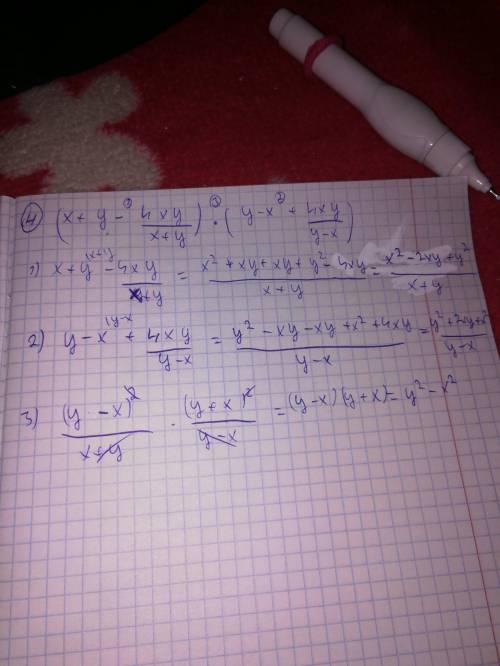 ④ (x + y - ① 4xy/(x+y)) ③ · (y - x ② + 4xy/(y-x))
1) x + y |x+y - 4xy/(x+y) = (x² + xy + xy + y² - 4xy)/(x+y) = (x² - 2xy + y²)/(x+y)
2) y - x |y-x + 4xy/(y-x) = (y² - xy - xy + x² + 4xy)/(y-x) = (y² + 2xy + x²)/(y-x)
3) (y - x)²/(x+y) · (y + x)²/(y-x) = (y-x)(y+x) = y² - x²